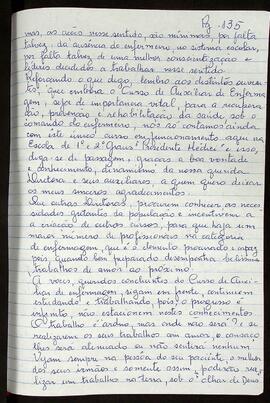 Pg. 135
mas, as ações nesse sentido, são mínimas, por falta
talvez, da ausência do enfermeiro, no sistema escolar,
por falta talvez, de uma melhor conscientização e
líderes decididos a trabalhar nesse sentido.
Reforçando o que digo, lembro aos distintos ouvin-
tes, que embora o Curso de Auxiliar de Enferma-
gem, seja de importância vital, para a recupera-
ção, prevenção e rehabilitação da saúde sob o
comando do enfermeiro, nós só contamos ainda,
com este único curso em funcionamento aqui na
Escola de 1º e 2º Graus Presidente Médici e isso,
diga-se de passagem, graças a boa vontade
e conhecimento, dinamismo da nossa querida
Diretora e seus auxiliares, a quem quero deixar
os meus sinceros agradecimentos.
Que outras Diretoras, procurem conhecer as neces-
sidades gritantes da população e incentivem a
a criação de outros cursos, para que haja um
maior número de profissionais na categoria
de enfermagem, que é o elemento procurado e capaz
pois, quando bem preparado desempenha belíssimos
trabalhos de amor ao próximo.
A vocês, queridos concluintes do Curso de Auxi-
liar de enfermagem, sigam em frente, continuem
estudando e trabalhando, pois, o progresso é
infinito, não estacionem nestes conhecimentos.
O trabalho é árduo, mas onde não será? e se
realizarem os seus trabalhos com amor, o cansaço
lhes será aliviado ou não sentirá nenhum.
Vejam sempre na pessoa do seu paciente, o melhor
dos seus irmãos e somente assim, poderás rea-
lizar um trabalho na terra, sob o olhar de Deus